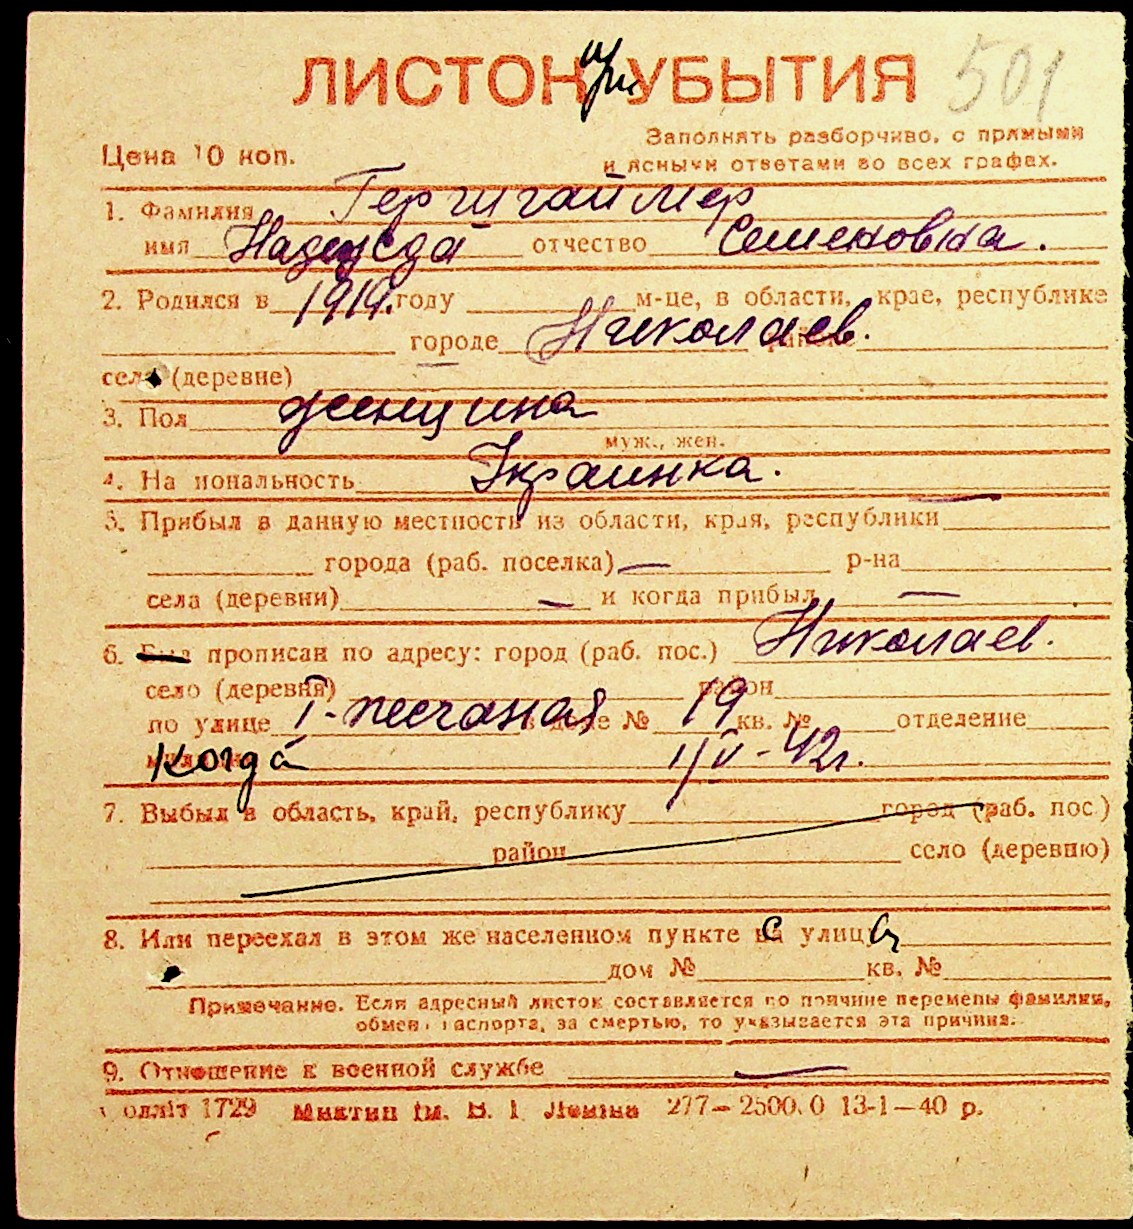 ЛИСТОК при УБЫТИЯ 501
Цена 10 коп.
Заполнять разборчиво, с прямыми
и ясными ответами во всех графах.
1. Фамилия Гергигаймер
имя Надежда отчество Семеновна.
2. Родился в 1919. году м-це, в области, крае, республике
городе Николаев.
села (деревне)
3. Пол женщина
муж., жен.
4. Национальность Украинка.
5. Прибыл в данную местность из области, края, республики —
города (раб. поселка) — р-на
села (деревни) — и когда прибыл —
6. Был прописан по адресу: город (раб. пос.) Николаев.
село (деревня) район
по улице I-песчаная в доме № 19 кв. № отделение
Когда 1/V-42г.
7. Выбыл в область, край, республику город (раб. пос.)
район село (деревню)
8. Или переехал в этом же населенном пункте с улицы
дом № кв. №
Примечание. Если адресный листок составляется по причине перемены фамилии,
обмена паспорта, за смертью, то указывается эта причина.
9. Отношение к военной службе —
1729 ім. В. І. Леніна 277—2500.0 13-1—40 р.